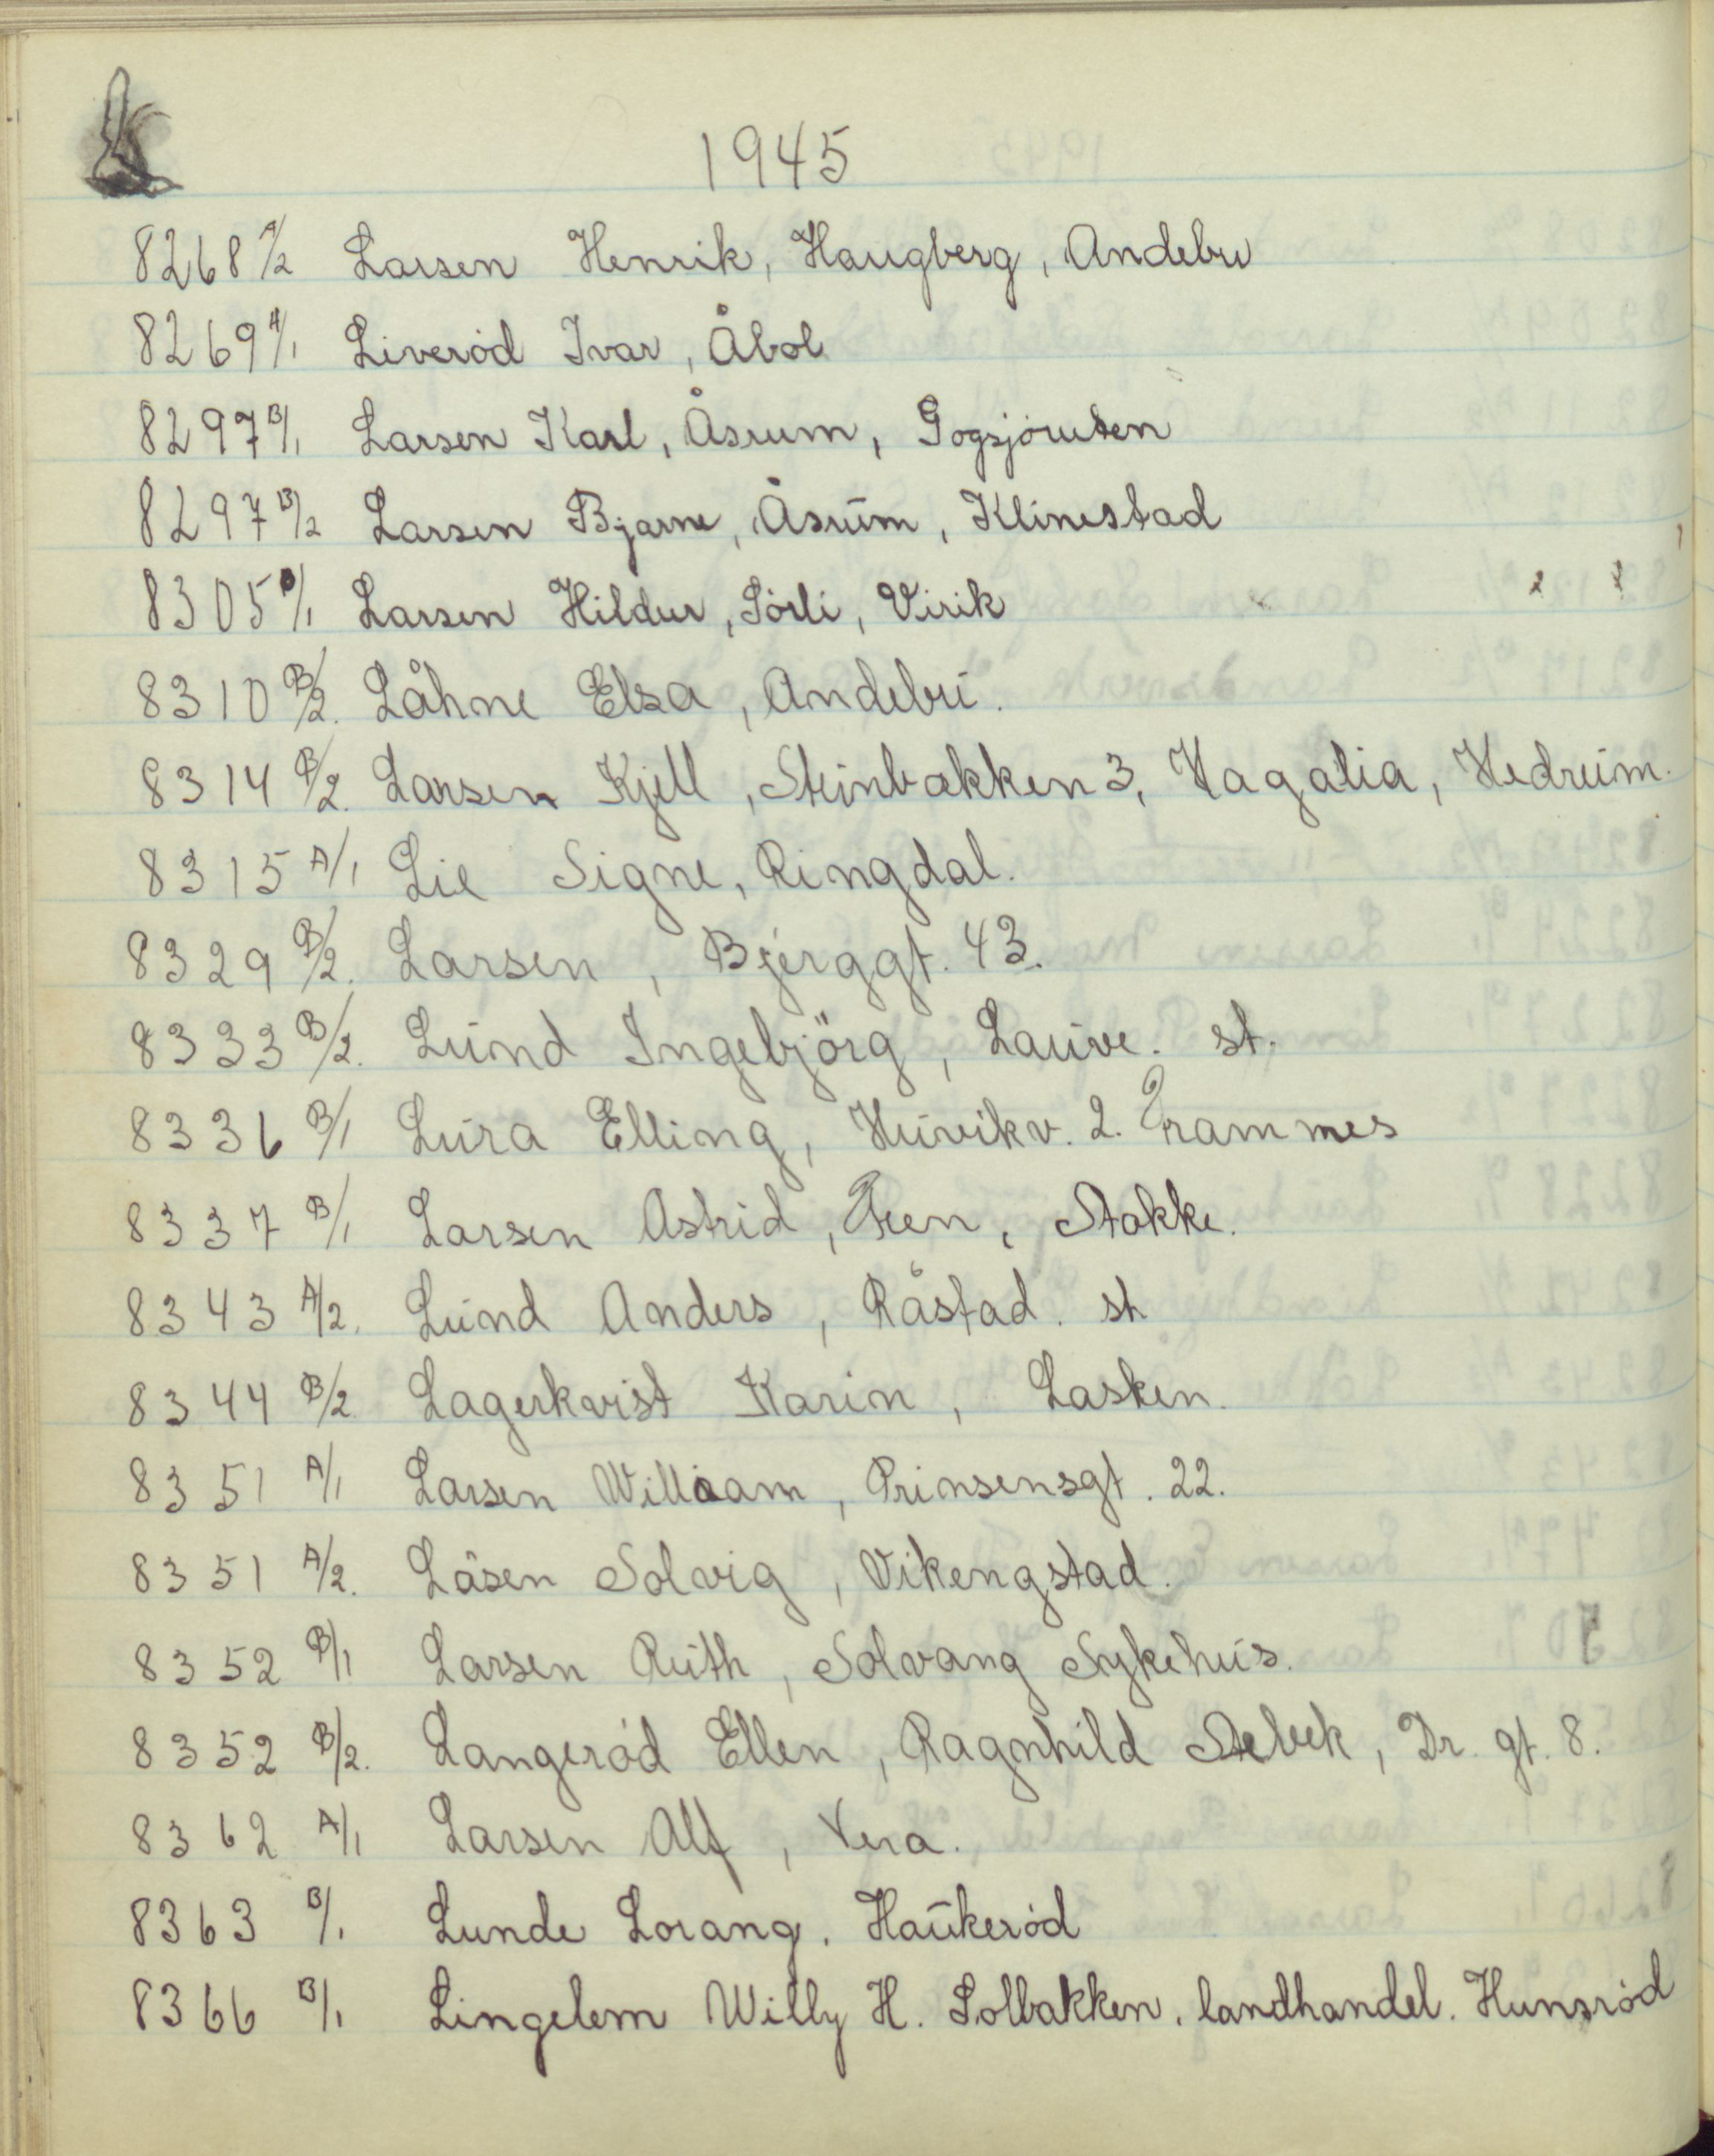 1945
8268 A/2 Larsen Henrik, Haugberg, Andebu
8269 A/1 Liveröd Ivar, Åbol
8297 B/1 Larsen Karl, Åsrum, Gogsjöruten
8297 B/2 Larsen Bjarne, Åsrum, Klinestad
8305 B/1 Larsen Hildur, Sörli, Virik
8310 B/2. Låhne Elsa, Andebu.
8314 B/2. Larsen Kjell, Steinbakken 3, Hagalia, Hedrum.
8315 A/1 Lie Signe, Ringdal.
8329 B/2. Larsen, Bjerggt. 43.
8333 B/2. Lund Ingebjörg, Lauve. st.
8336 B/1 Lura Elling, Huvikv. 2. Framnes
8337 B/1 Larsen Astrid, Fen, Stokke.
8343 A/2. Lund Anders, Råstad. st
8344 B/2. Lagerkvist Karin, Lasken.
8351 A/1 Larsen William, Prinsensgt. 22.
8351 A/2. Låsen Solvig, Vikengstad.
8352 B/1 Larsen Ruth, Solvang Sykehus.
8352 B/2. Langeröd Ellen, Ragnhild, Dr. gt. 8.
8362 A/1 Larsen Alf, Vera.
8363 B/1. Lunde Lorang. Haukeröd
8366 B/1 Lingelem Willy H. Solbakken. landhandel. Hunsröd